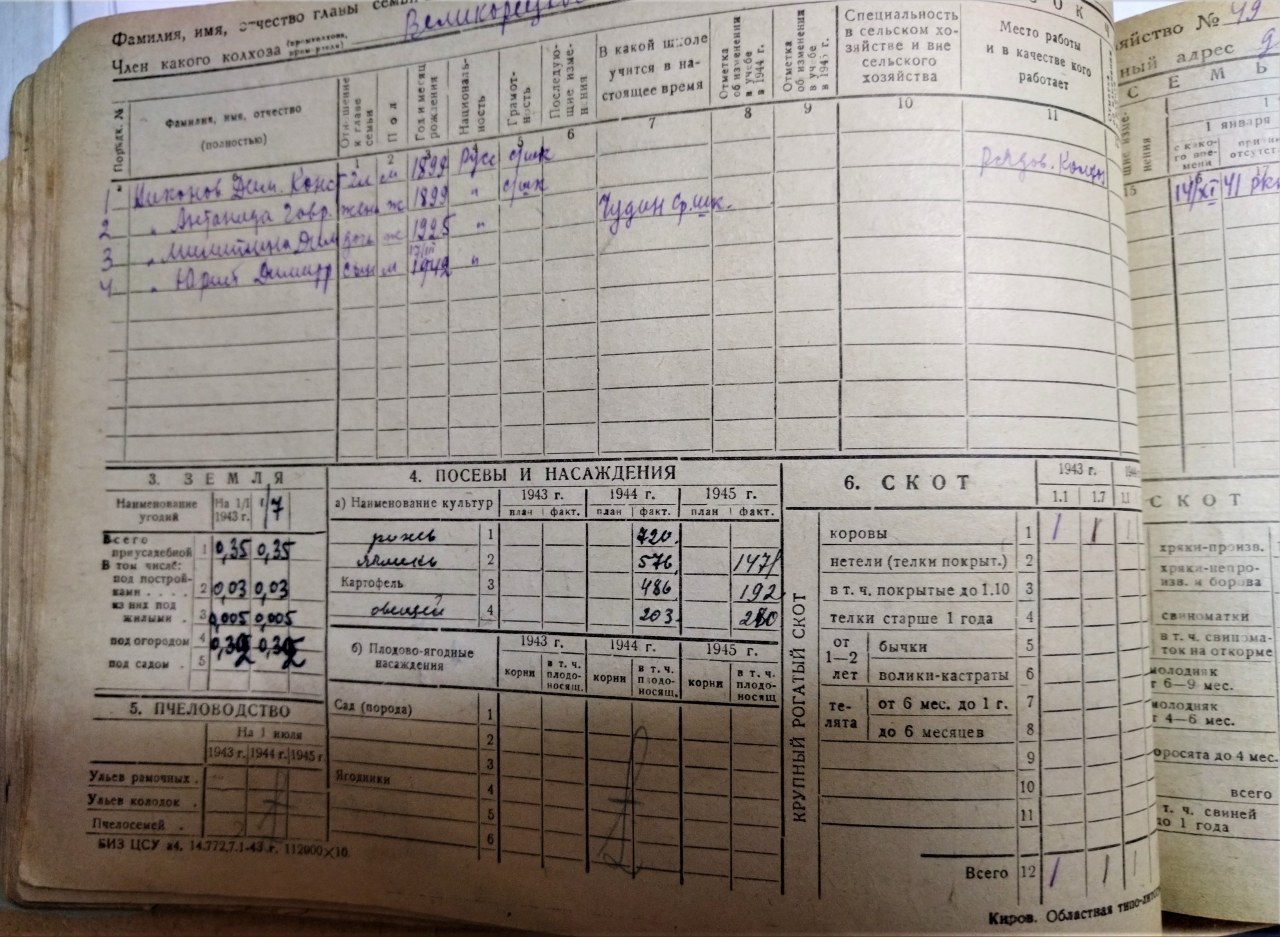 Фамилия, имя, отчество главы
Член какого колхоза
Порядк. №
Фамилия, имя, отчество (полностью)
Отношение к главе семьи
Пол
Год и месяц рождения
Националь-ность
Грамот-ность
Последую-щие изме-нения
В какой школе учится в на-стоящее время
Отметка об изменении в учебе в 1944 г.
Отметка об изменении в учебе в 1945 г.
Специальность в сельском хо-зяйстве и вне сельского хозяйства
Место работы и в качестве кого работает
1 2 3 4 5 6 7 8 9 10 11
1 Никонов Дим. Конст гл м 1899 Русс с/шк
2 " Гавр. жена ж 1899 " с/шк
3 " Дим дочь ж 1925 " ср.шк.
4 " Юрий сын м 17/III 1942 "
3. ЗЕМЛЯ
Наименование угодий На 1/I 1943 г.
Всего приусадебной 1 0,35 0,35
В том числе:
под построй-ками . . . . 2 0,03 0,03
из них под жилыми . 3 0,005 0,005
под огородом 4
под садом . 5
5. ПЧЕЛОВОДСТВО
На 1 июля
1943 г. 1944 г. 1945 г
Ульев рамочных .
Ульев колодок .
Пчелосемей .
БИЗ ЦСУ
4. ПОСЕВЫ И НАСАЖДЕНИЯ
а) Наименование культур 1943 г. 1944 г. 1945 г.
план факт. план факт. план факт.
рожь 1 720.
ячмень 2 576, 1471
Картофель 3 486 192
овощей 4 203.
б) Плодово-ягодные насаждения 1943 г. 1944 г. 1945 г.
корни в т. ч. плодо-носящ. корни в т. ч. плодо-носящ. корни в т. ч. плодо-носящ
Сад (порода) 1
2
3
Ягодники 4
5
6
6. СКОТ
1943 г.
1.1 1.7 1.1
КРУПНЫЙ РОГАТЫЙ СКОТ
коровы 1 1 1 1
нетели (телки покрыт.) 2
в т. ч. покрытые до 1.10 3
телки старше 1 года 4
от 1—2 лет бычки 5
волики-кастраты 6
те-лята от 6 мес. до 1 г. 7
до 6 месяцев 8
9
10
11
Всего 12 1 1 1
Киров. Областная
яйство № 49
ный адрес
СЕМЬ
1 января
15 14/XI 41
СКОТ
хряки-произв.
хряки-непро-изв. и борова
свиноматки
в т. ч. свинома-ток на откорме
молодняк
6—9 мес.
молодняк
4—6 мес.
оросята до 4 мес.
всего
т. ч. свиней
до 1 года